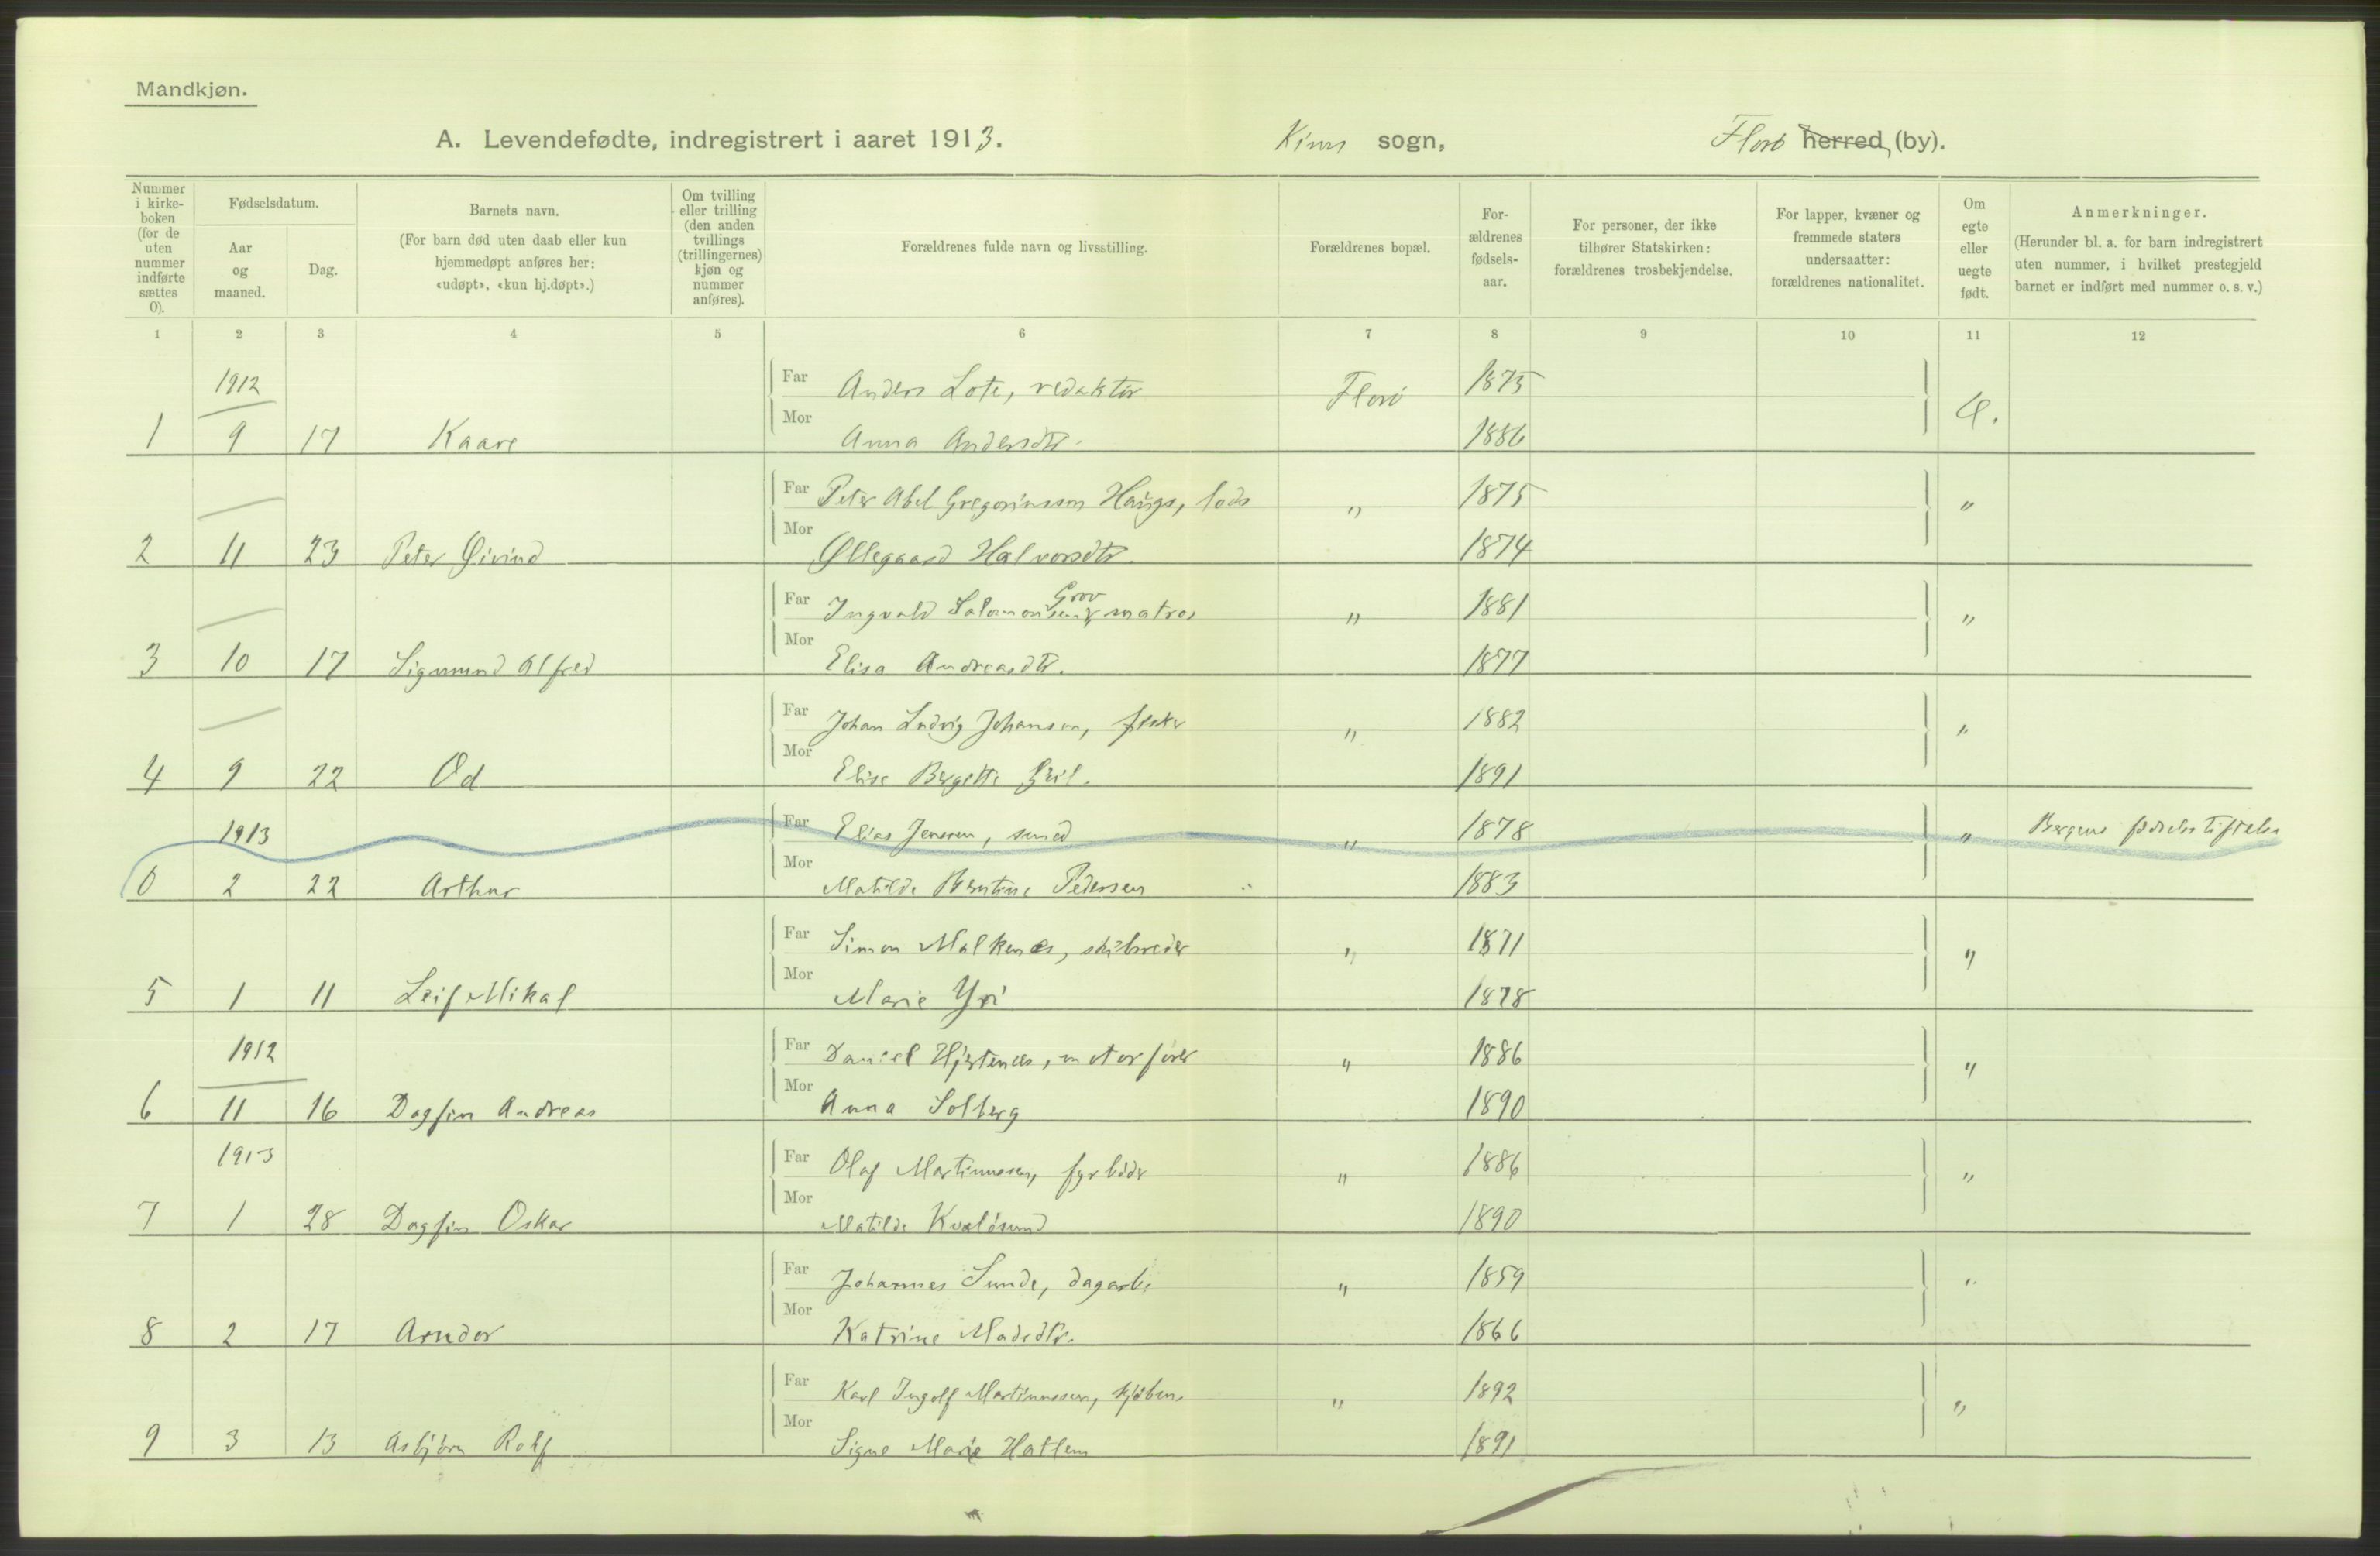 Mandkjøn.
A. Levendefødte, indregistrert i aaret 1913. Kinn sogn, Florø herred (by).
Nummer i kirke-boken (for de uten nummer indførte sættes 0).
Fødselsdatum.
Aar og maaned.
Dag.
Barnets navn.
(For barn død uten daab eller kun hjemmedøpt anføres her: «udøpt», «kun hj.døpt».)
Om tvilling eller trilling (den anden tvillings (trillingernes) kjøn og nummer anføres).
Forældrenes fulde navn og livsstilling.
Forældrenes bopæl.
For-ældrenes fødsels-aar.
For personer, der ikke tilhører Statskirken: forældrenes trosbekjendelse.
For lapper, kvæner og fremmede staters undersaatter: forældrenes nationalitet.
Om egte eller uegte født.
Anmerkninger.
(Herunder bl. a. for barn indregistrert uten nummer, i hvilket prestegjeld barnet er indført med nummer o. s. v.)
1 2 3 4 5 6 7 8 9 10 11 12
1912 Far Anders Lote, redaktør Florø 1875
1 9 17 Kaare Mor Anna Andersdtr. 1886
Far Peter Abel Gregoriussen Hauge, lods " 1875 "
2 11 23 Peter Øivind Mor Ollegaard Halvorsdtr. 1874
Grov
Far Ingvald Salomonsen matros " 1881 "
3 10 17 Sigmund Alfred Mor Elisa Andreasdtr. 1877
Far Johan Ludvig Johansen, fisker " 1882 "
4 9 22 Od Mor Elise Bergette 1891
1913 Far Elias Jensen, smed " 1878 " Bergens fødselsstiftelse
0 2 22 Arthur Mor Matilde Bentine Pedersen 1883
Far Simon Malkenes, skibsreder " 1871 "
5 1 11 Leif Mikal Mor Marie Yri 1878
1912 Far Daniel Hjertenes, motorfører " 1886 "
6 11 16 Dagfin Andreas Mor Anna Solberg 1890
1913 Far Olaf Martinussen, fyrbøder " 1886 "
7 1 28 Dagfin Oskar Mor Matilde Kvaløsund 1890
Far Johannes Sunde, dagarb. " 1859 "
8 2 17 Arndor Mor Katrine Madsdtr. 1866
Far Karl Ingolf Martinussen, kjøbm. " 1892 "
9 3 13 Asbjørn Rolf Mor Signe Marie Hatlem 1891